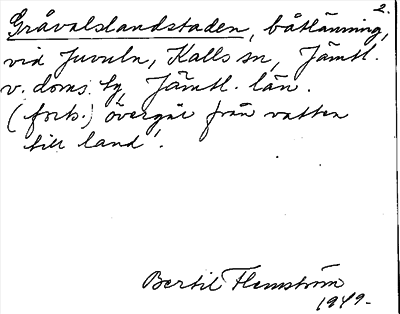 2.
Gråvalslandstaden, båtlänning,
vid Juveln, Kalls sn, Jämtl.
v. doms. tg, Jämtl. län.
(forts.) övergår från vatten
till land!
Bertil Flemström
1949-